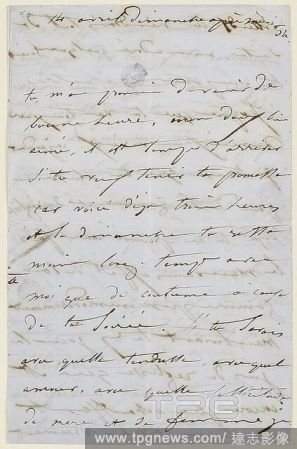 14 avril dimanche après midi 3h
tu m'as promis de venir de
bonne heure, mon doux bien
aimé, il est temps d'arriver
si tu veux tenir ta promesse
car voici déjà trois heures
et le dimanche tu restes
moins longtemps avec
moi que de coutume à cause
de ta soirée. Si tu savais
avec quelle tendresse, avec quel
amour, avec quelle sollicitude
de mère et de femme je
TPG
www.tpgnews.com / 達志影像